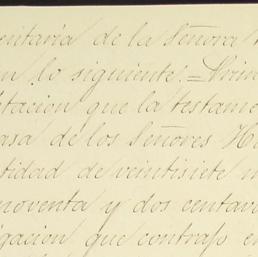 entaria de la Señora
n lo siguiente = Prim
tacion que la testame
asa de los Señores He
tidad de veintisiete m
noventa y dos centav
gacion que contrajo en